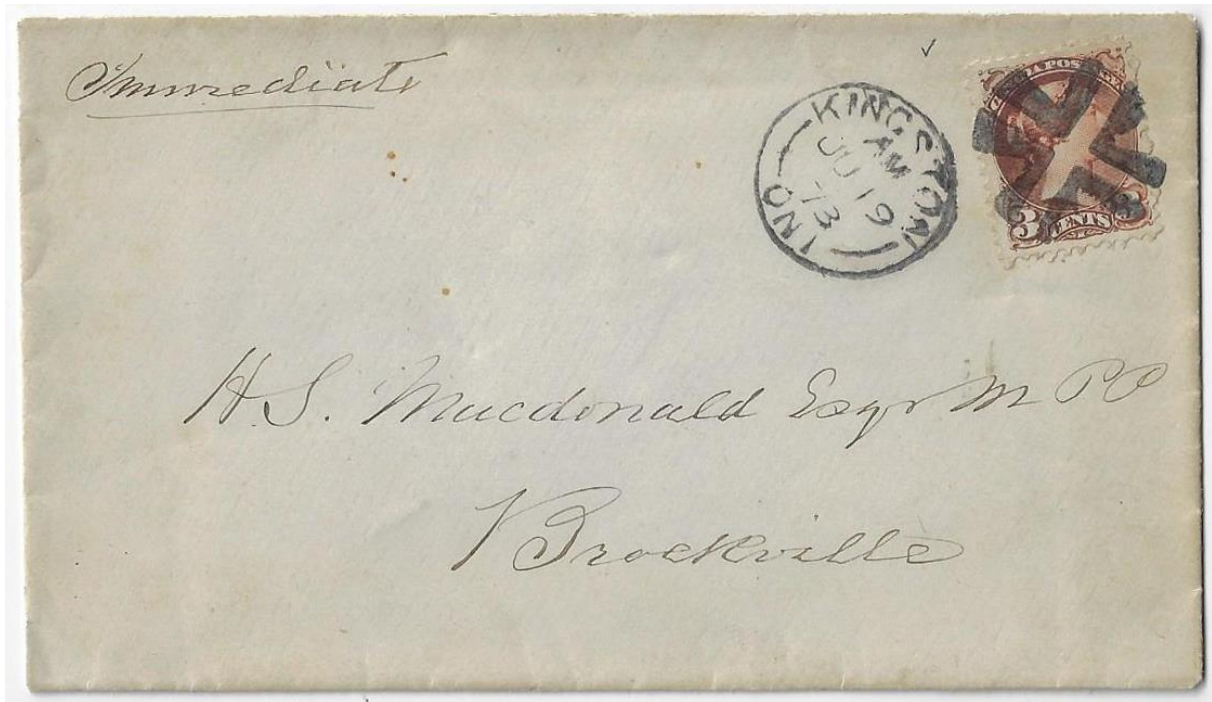 Immediate
KINGSTON
AM
JU 19
73
ONT
CANADA POSTAGE
3 CENTS 3
H.S. Macdonald Esqr M PP
Brockville